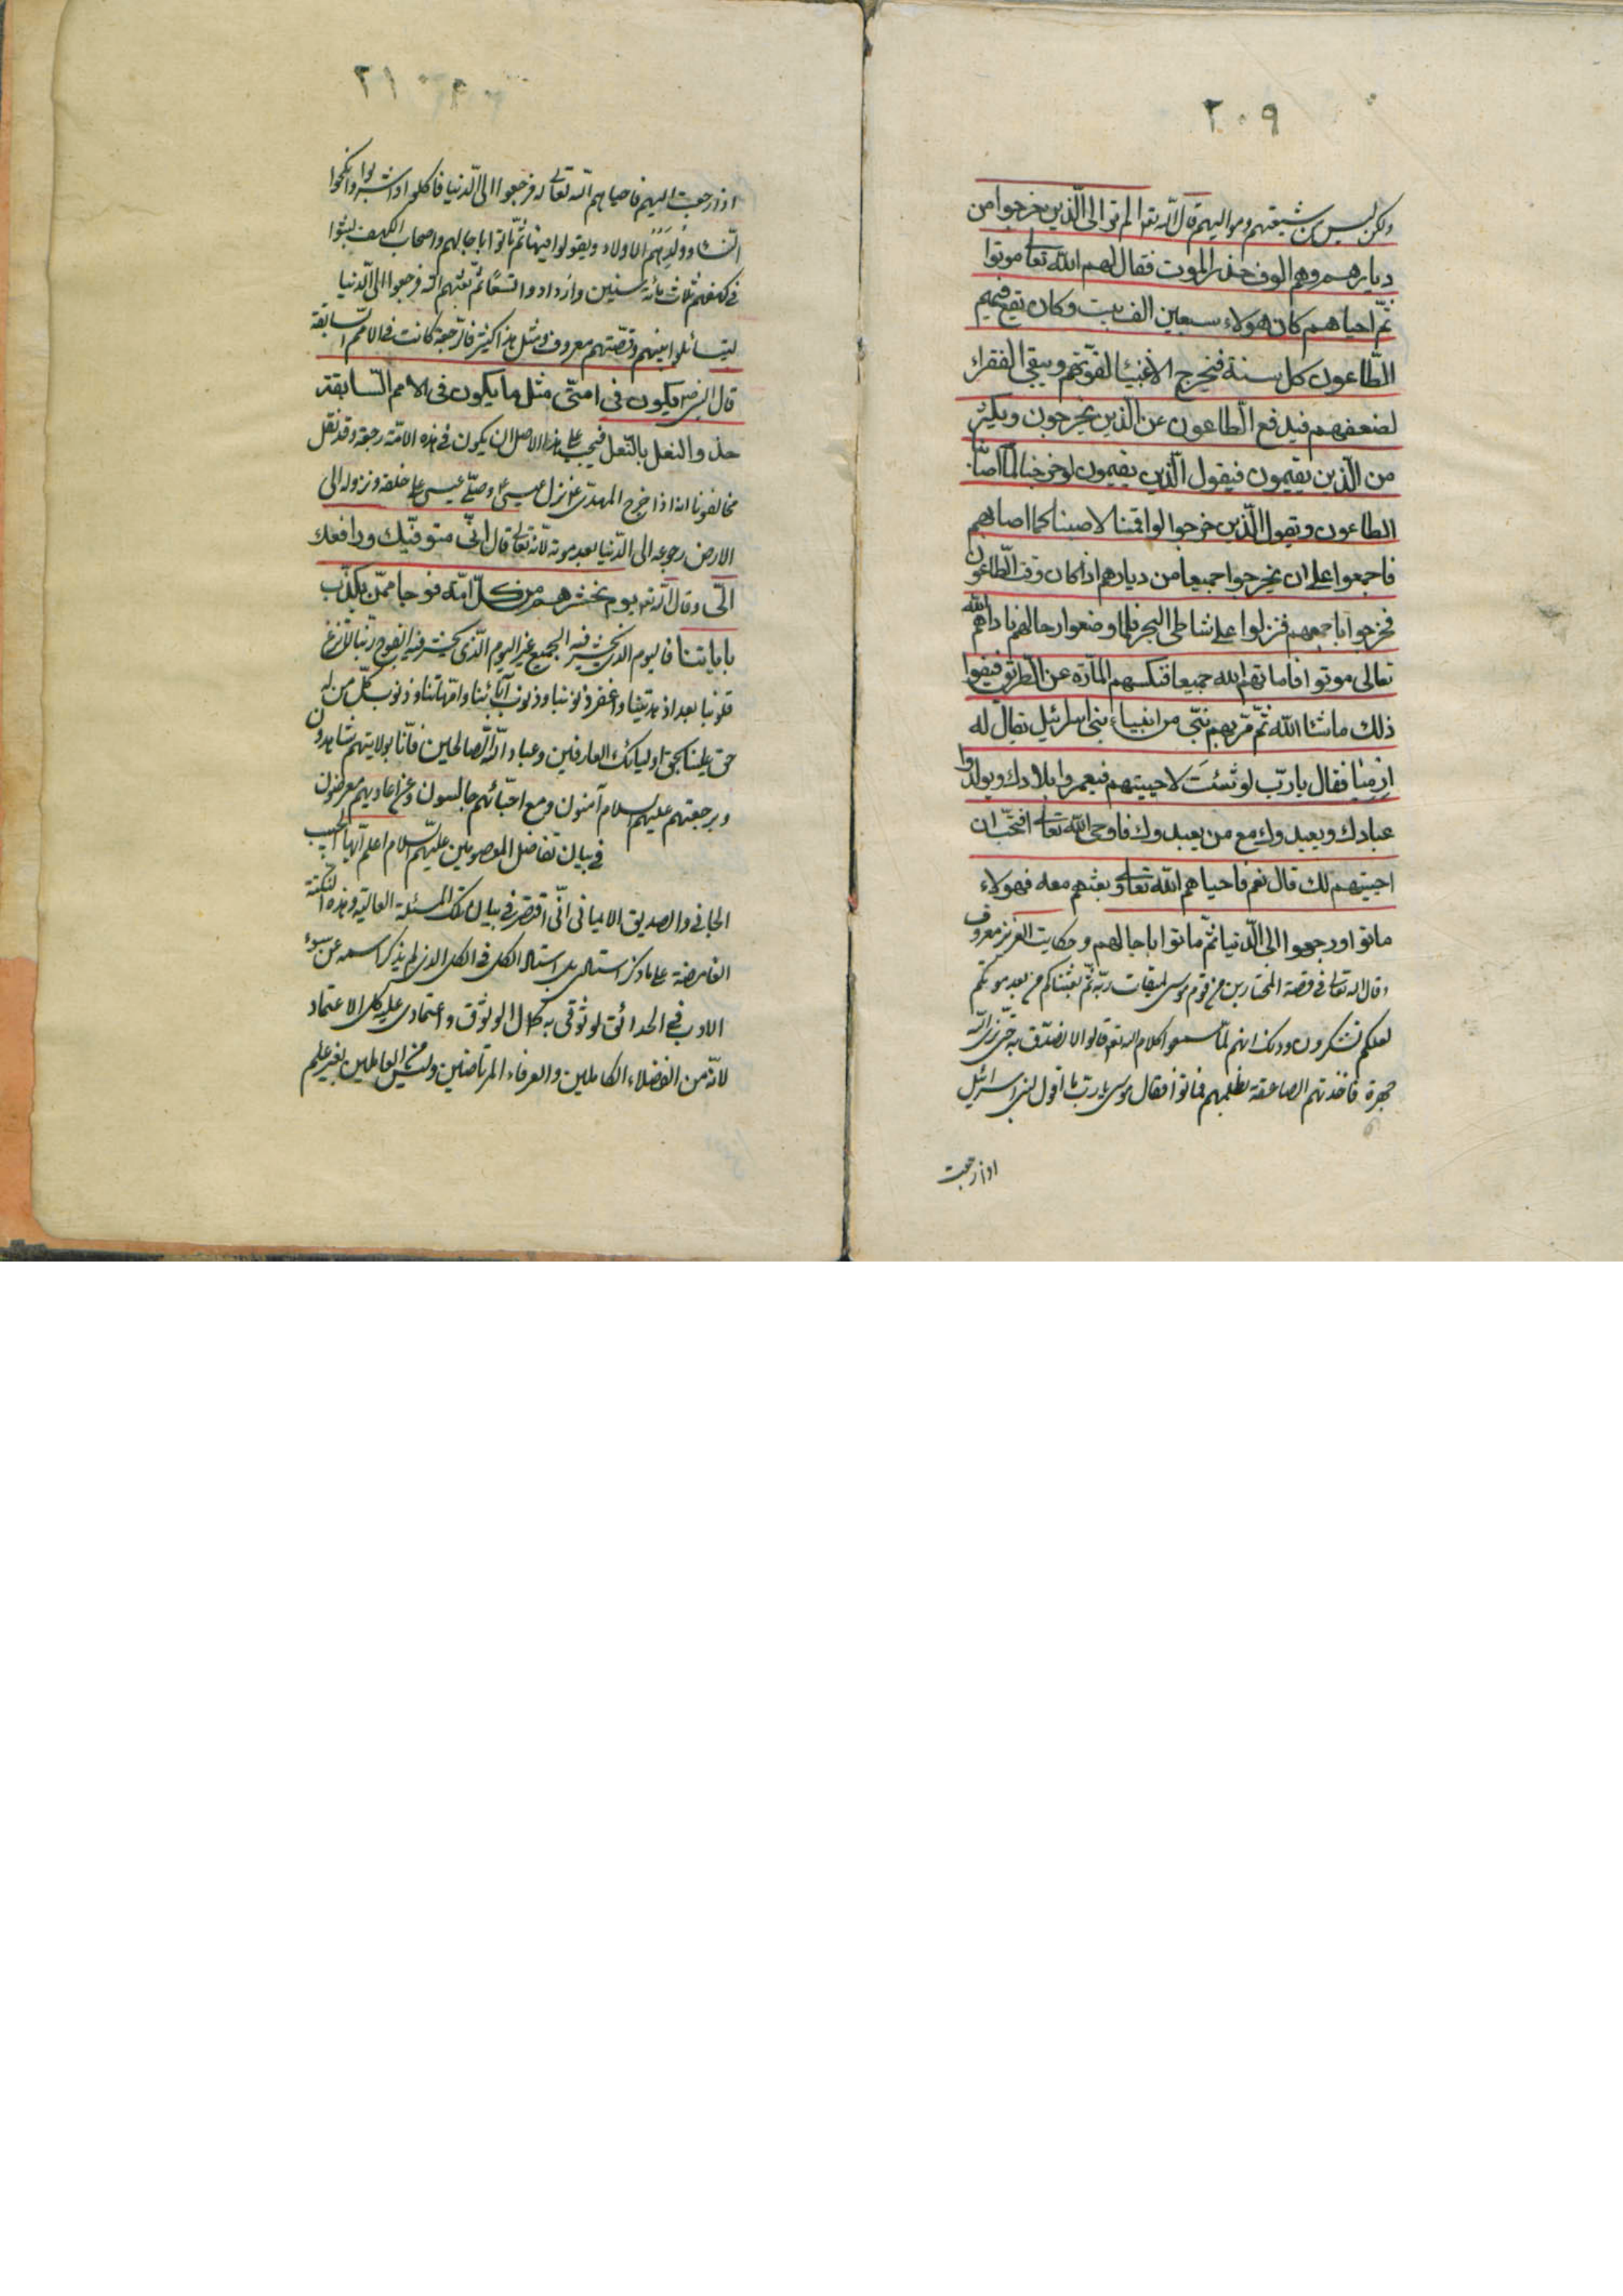 ٢٠٩
ولكن ليس من شيعتهم ومواليهم قال الله تعالى الم تر الى الّذين خرجوا من
ديارهم وهم الوف حذر الموت فقال لهم الله تعالى موتوا
ثمّ احياهم كان هولاء سبعين الف بيت وكان يقع فيهم
الطّاعون كل سنة فيخرج الاغنياء لقوّتهم ويبقى الفقراء
لضعفهم فيدفع الطّاعون عن الّذين يخرجون ويكثر
من الّذين يقيمون فيقول الّذين يقيمون لو خرجنا لما اصابنا
الطاعون ويقول الّذين خرجوا لو اقمنا لاصبنا كما اصابهم
فاجمعوا على ان يخرجوا جميعا من ديارهم اذا كان وقت الطّاعون
فخرجوا باجمعهم فنزلوا على شاطئ البحر فلما وضعوا رحالهم ناداهم الله
تعالى موتوا فاماتهم الله جميعا فكنسهم المارّة عن الطريق فبقوا
ذلك ما شاء الله ثمّ مرّ بهم نبىّ من انبياء بنى اسرائيل يقال له
ارميا فقال يا ربّ لو شئت لاحييتهم فيعمروا بلادك ويولدوا
عبادك ويعبدوك مع من يعبدوك فاوحى الله تعالى افتحبّ ان
احييهم لك قال نعم فاحياهم الله تعالى وبعثهم معه فهولاء
ماتوا ورجعوا الى الدّنيا ثمّ ماتوا باجالهم وحكايت العزيز معروف
وقال الله تعالى في قصة المختارين من قوم موسى لميقات ربّه ثمّ بعثناكم من بعد موتكم
لعلكم تشكرون وذلك انهم لمّا سمعوا كلام الله تعالى قالوا لا نصدّق به حتّى نرى الله
جهرة فاخذتهم الصاعقة بظلمهم فماتوا فقال موسى يا ربّ ما اقول لبنى اسرائيل
اذا رجعت
٢١٠
اذا رجعت اليهم فاحياهم الله تعالى له فرجعوا الى الدّنيا فاكلوا واشربوا وانكحوا
النّساء وولد لهم الاولاد وبقوا فيها ثمّ ماتوا باجالهم واصحاب الكهف لبثوا
في كهفهم ثلاث مائة سنين وازدادوا تسعًا ثمّ بعثهم الله فرجعوا الى الدّنيا
ليتسائلوا بينهم وقصّتهم معروف ومثل هذا كثير فالرّجعة كانت في الامم السّابقة
قال النبى ص يكون فى امتى مثل ما يكون فى الامم السّابقة
حذو النعل بالنّعل فيجب على هذا الاصل ان يكون في هذه الامّة رجعة وقد نقل
مخالفونا انه اذا خرج المهدى ع نزل عيسى ع وصلّى عيسى ع خلفه ونزوله الى
الارض رجوعه الى الدّنيا بعد موته لانّه تعالى قال انّى متوفّيك ورافعك
الىّ وقال الله تعالى يوم نحشرهم من كلّ امّة فوجا ممّن يكذّب
باياتنا فاليوم الذى يحشر فيه الجميع غير اليوم الّذى يحشر فيه الفوج ربّنا لا تزغ
قلوبنا بعد اذ هديتنا واغفر ذنوبنا وذنوب آبائنا وامّهاتنا وذنوب كلّ من له
حق علينا بحق اوليائك العارفين وعباد الله الصّالحين فانّا بولايتهم شاهدون
وبرجعتهم عليهم السلام آمنون ومع احبّائهم جالسون وعن اعاديهم معرضون
في بيان تفاضل المعصومين عليهم السّلام اعلم ايّها الحبيب
الجانى والصديق الايمانى انّى اقتصر في بيان تلك المسئلة العالية وهذه النكتة
الغامضة على ما ذكر استادى بل استاد الكل فى الكل الذى لم يذكر اسمه عن سوء
الادب في الحدائق لوثوقى به كمال الوثوق واعتمادى عليه كل الاعتماد
لانّه من الفضلاء الكاملين والعرفاء المرتاضين وليس من العاملين بغير علم